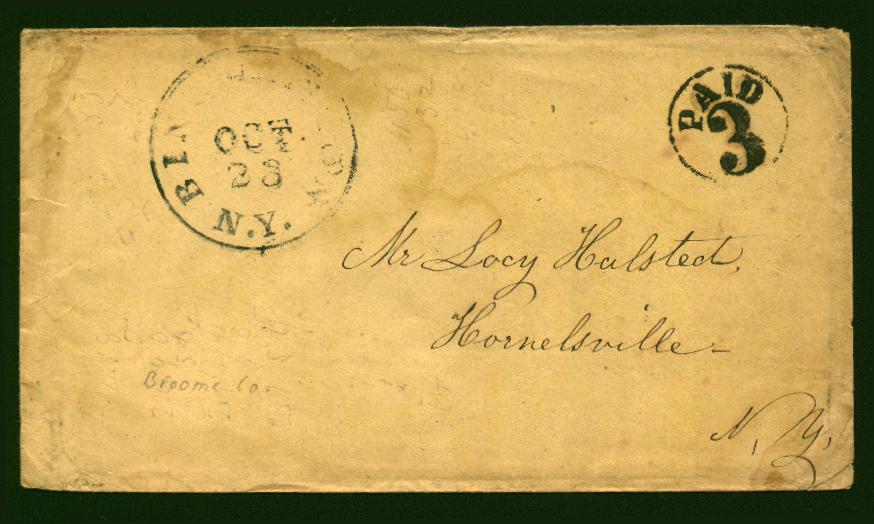 OCT
23
N.Y.
PAID
3
Mr Locy Halsted,
Hornelsville
N. Y.
Broome Co.